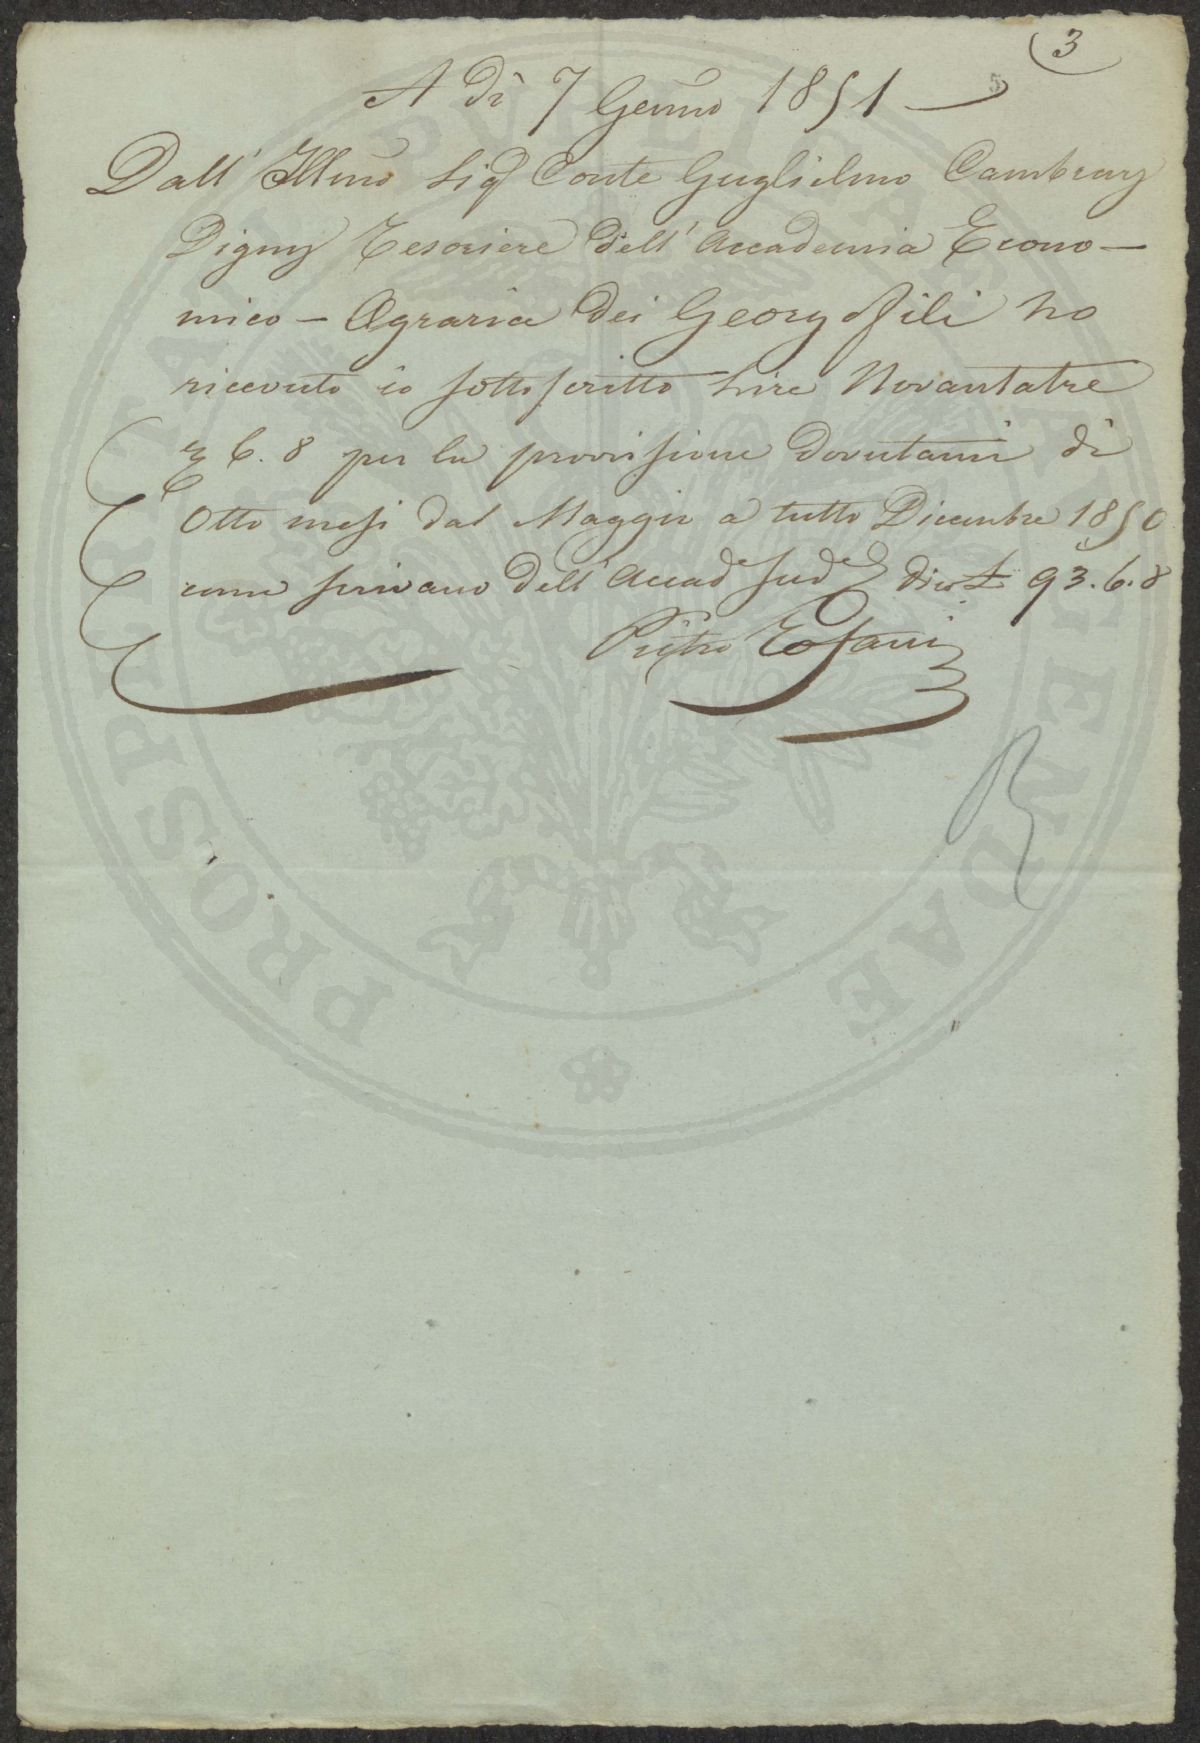 3
5
A dì 7 Genno 1851
Dall' Illmo Sigr Conte Guglielmo Cambray
Digny Tesoriere dell' Accademia Econo-
mico-Agraria dei Georgofili ho
ricevuto io sottoscritto Lire Novantatre
e 6. 8 per la provvisione dovutami di
Otto mesi dal Maggio a tutto Dicembre 1850
come scrivano dell' Accada sudda dico £ 93. 6. 8
Pietro
PROSPERITATI PVBLICAE AVGENDAE